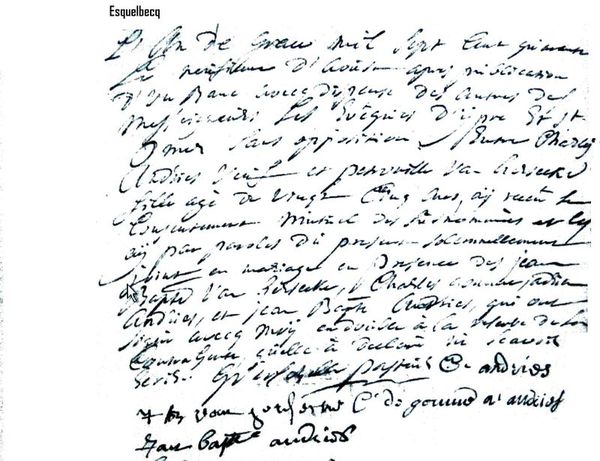 Esquelbecq
L'An De Grace mil Sept Cent quinze
Le neufieme D'Aoust apres publication
D'un Banc avecq dispense des autres des
Messeigneurs Les Evêques D'ipre Et St
Omer Sans opposition Entre Charles
Andries Veuf et petronille Van
fille agé de Vingt Cinq Ans, aij receu le
Consentement Mutuel des Susnommés et les
aij par paroles Du present solemnellement
joint en mariage en presence des jean
Bapte Van , Charles
Andries, et jean Bapte Andries, qui ont
signé avecq Moij endouble a la reserve de la
Contractante, quelle a declaré ne scavoir
Ecrire pasteur C. andries
C. de a. andries
Jan bapte andries